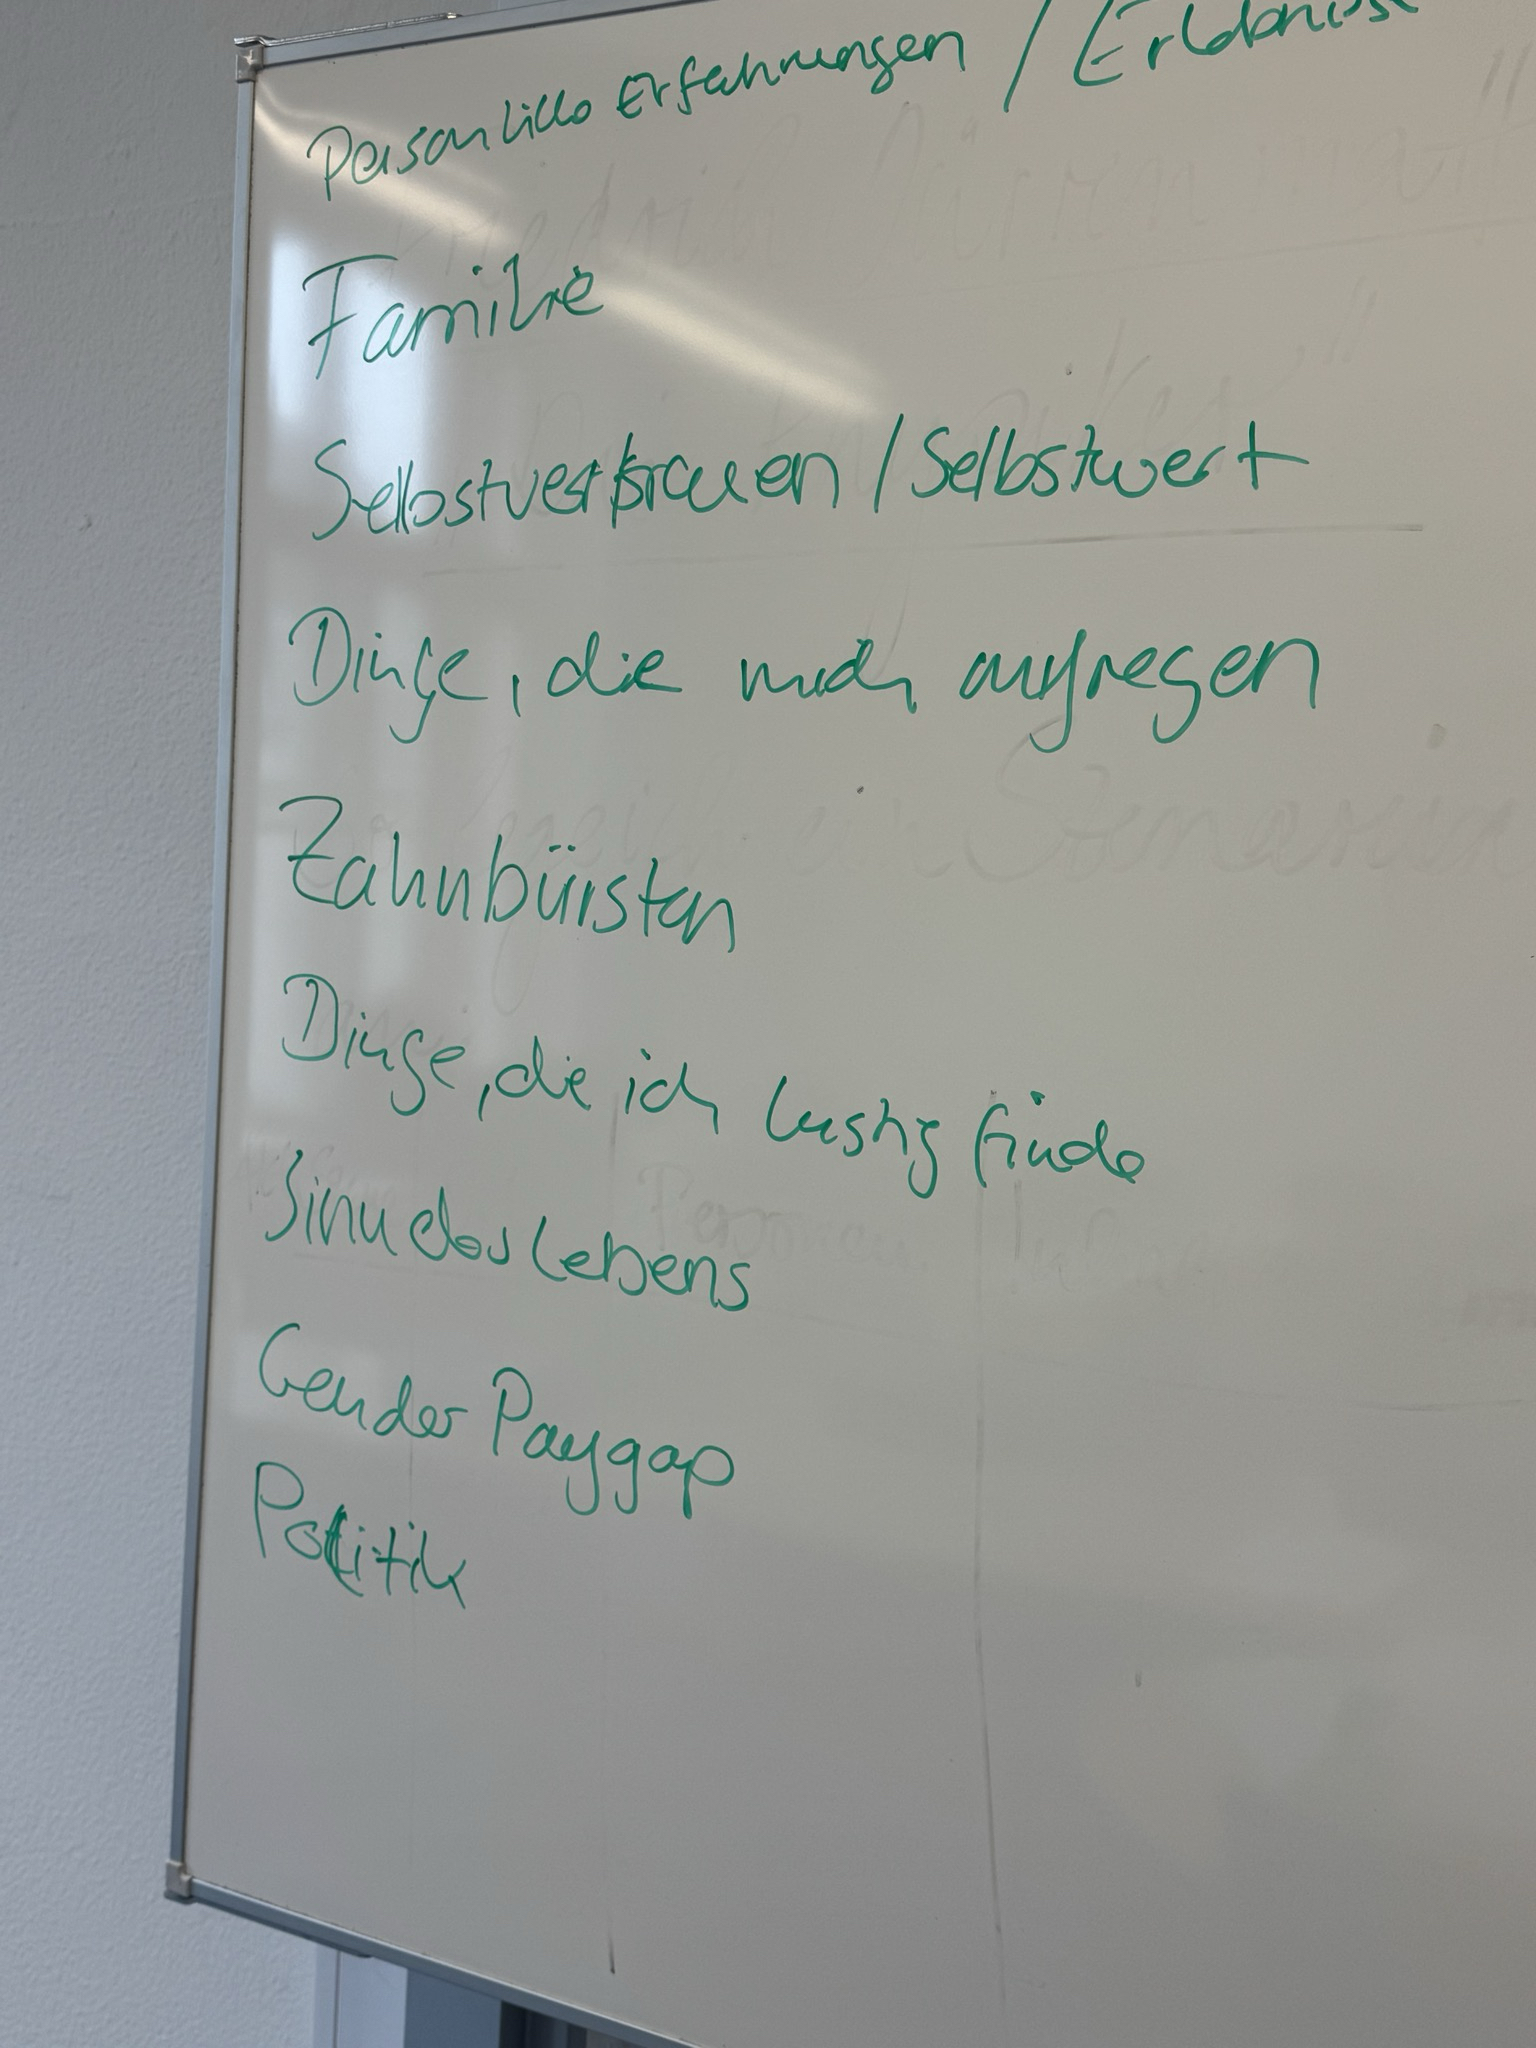 Persönliche Erfahrungen / Erlebnisse
Familie
Selbstvertrauen / Selbstwert
Dinge, die mich aufregen
Zahnbürsten
Dinge, die ich lustig finde
Sinn des Lebens
Gender Paygap
Politik